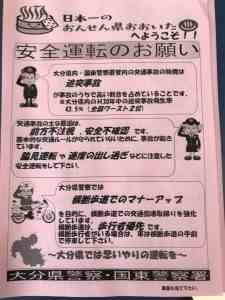 日本一の
おんせん県おおいた
へようこそ！！
安全運転のお願い
大分県内・国東警察署管内の交通事故の特徴は
追突事故
が事故のうちで高い割合を占めていることです。
※大分県内のH30年中の追突事故発生率
43.5%（全国ワースト2位）
交通事故の主な原因は、
前方不注視、安全不確認 です。
基本的な交通ルールが守られていないために、事故が起き
ています。
脇見運転 や 速度の出し過ぎ などに注意した
安全運転をして下さい。
大分県警察では
横断歩道でのマナーアップ
を目的に、横断歩道での交通指導取締りを強化し
ています。
横断歩道は、歩行者優先 です。
横断歩行者がいる場合は、車は横断歩道の手前
で停車して下さい。
～大分県では思いやりの運転を～
大分県警察・国東警察署